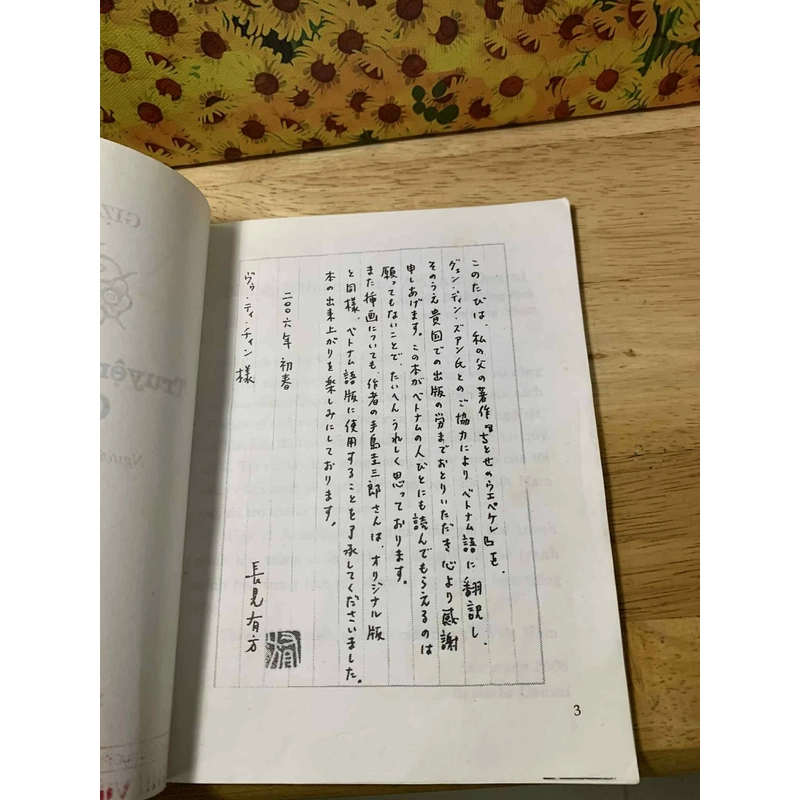 このたびは、私の父の著作『ちとせのウエペケレ』を、
グェン・ディン・ズアン氏とのご協力によりベトナム語に翻訳し、
そのうえ貴国での出版の労までおとりいただき心より感謝
申しあげます。この本がベトナムの人びとにも読んでもらえるのは
願ってもないことで、たいへんうれしく思っております。
また挿画についても、作者の手島圭三郎さんは、オリジナル版
と同様、ベトナム語版に使用することを了承してくださいました。
本の出来上がりを楽しみにしております。
二〇〇六年 初春
長見有方
ヴゥ・ティ・チャン 様
3
GIZ
Truyện
Người